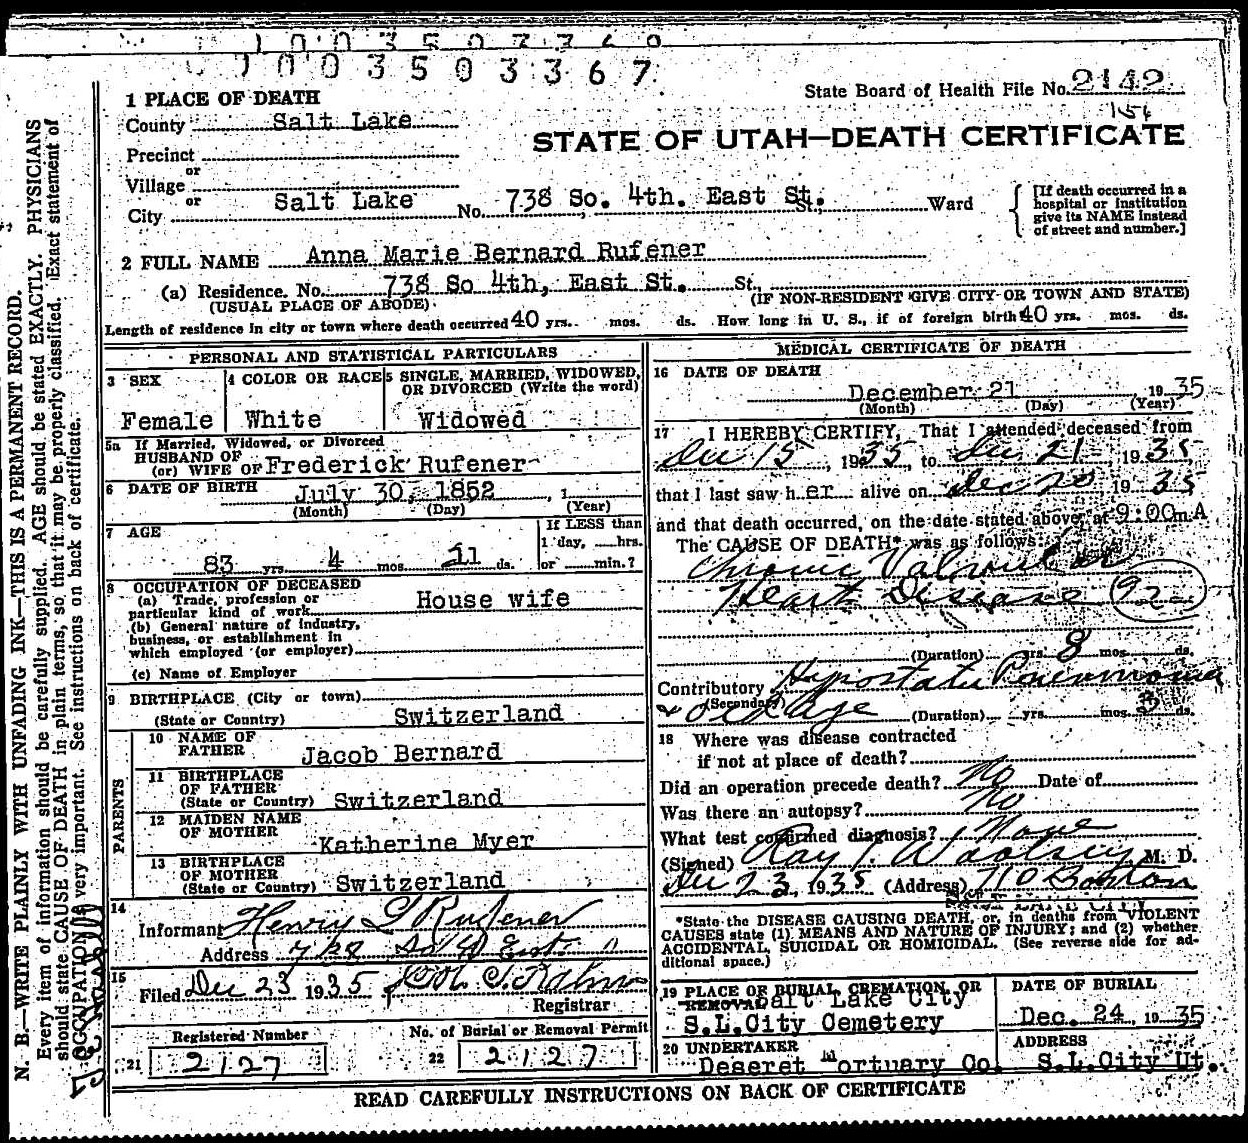 1003503367
State Board of Health File No. 2142
154
STATE OF UTAH—DEATH CERTIFICATE
1 PLACE OF DEATH
County Salt Lake
Precinct
or
Village
or
City Salt Lake No. 738 So. 4th. East St. St., Ward
[If death occurred in a hospital or institution give its NAME instead of street and number.]
2 FULL NAME Anna Marie Bernard Rufener
(a) Residence. No. 738 So 4th, East St. St.,
(USUAL PLACE OF ABODE) (IF NON-RESIDENT GIVE CITY OR TOWN AND STATE)
Length of residence in city or town where death occurred 40 yrs. mos. ds. How long in U. S., if of foreign birth 40 yrs. mos. ds.
PERSONAL AND STATISTICAL PARTICULARS
3 SEX
Female
4 COLOR OR RACE
White
5 SINGLE, MARRIED, WIDOWED, OR DIVORCED (Write the word)
Widowed
5a If Married, Widowed, or Divorced
HUSBAND OF
(or) WIFE OF Frederick Rufener
6 DATE OF BIRTH July 30, 1852, 1
(Month) (Day) (Year)
7 AGE
83 yrs 4 mos 21 ds.
If LESS than
1 day, hrs.
or min.?
8 OCCUPATION OF DECEASED
(a) Trade, profession or
particular kind of work House wife
(b) General nature of industry,
business, or establishment in
which employed (or employer)
(c) Name of Employer
9 BIRTHPLACE (City or town)
(State or Country) Switzerland
PARENTS
10 NAME OF
FATHER Jacob Bernard
11 BIRTHPLACE
OF FATHER
(State or Country) Switzerland
12 MAIDEN NAME
OF MOTHER Katherine Myer
13 BIRTHPLACE
OF MOTHER
(State or Country) Switzerland
14
Informant Henry L Rufener
Address 738 So 4 East
15
Filed Dec 23 1935
Registrar
Registered Number
21 2127
No. of Burial or Removal Permit
22 2127
MEDICAL CERTIFICATE OF DEATH
16 DATE OF DEATH
December 21 1935
(Month) (Day) (Year)
17 I HEREBY CERTIFY, That I attended deceased from
Dec 15, 1935, to Dec 21 1935
that I last saw her alive on Dec 20 1935
and that death occurred, on the date stated above, at 9:00 m A
The CAUSE OF DEATH* was as follows:
Chronic Valvular
Heart Disease 92
(Duration) yrs. 8 mos. ds.
Contributory Hypostatic Pneumonia
(Secondary)
& Old Age (Duration) yrs. mos. 3 ds.
18 Where was disease contracted
if not at place of death?
Did an operation precede death? No Date of
Was there an autopsy? No
What test confirmed diagnosis? None
(Signed) Ray T. Woolsey M. D.
Dec 23, 1935 (Address) 710 Boston
*State the DISEASE CAUSING DEATH, or, in deaths from VIOLENT
CAUSES state (1) MEANS AND NATURE OF INJURY; and (2) whether
ACCIDENTAL, SUICIDAL OR HOMICIDAL. (See reverse side for ad-
ditional space.)
19 PLACE OF BURIAL, CREMATION, OR
REMOVAL Salt Lake City
S.L.City Cemetery
DATE OF BURIAL
Dec. 24, 1935
20 UNDERTAKER
Deseret Mortuary Co.
ADDRESS
S.L.City Ut.
READ CAREFULLY INSTRUCTIONS ON BACK OF CERTIFICATE
N. B.—WRITE PLAINLY WITH UNFADING INK—THIS IS A PERMANENT RECORD.
Every item of information should be carefully supplied. AGE should be stated EXACTLY. PHYSICIANS
should state CAUSE OF DEATH in plain terms, so that it may be properly classified. Exact statement of
OCCUPATION is very important. See instructions on back of certificate.